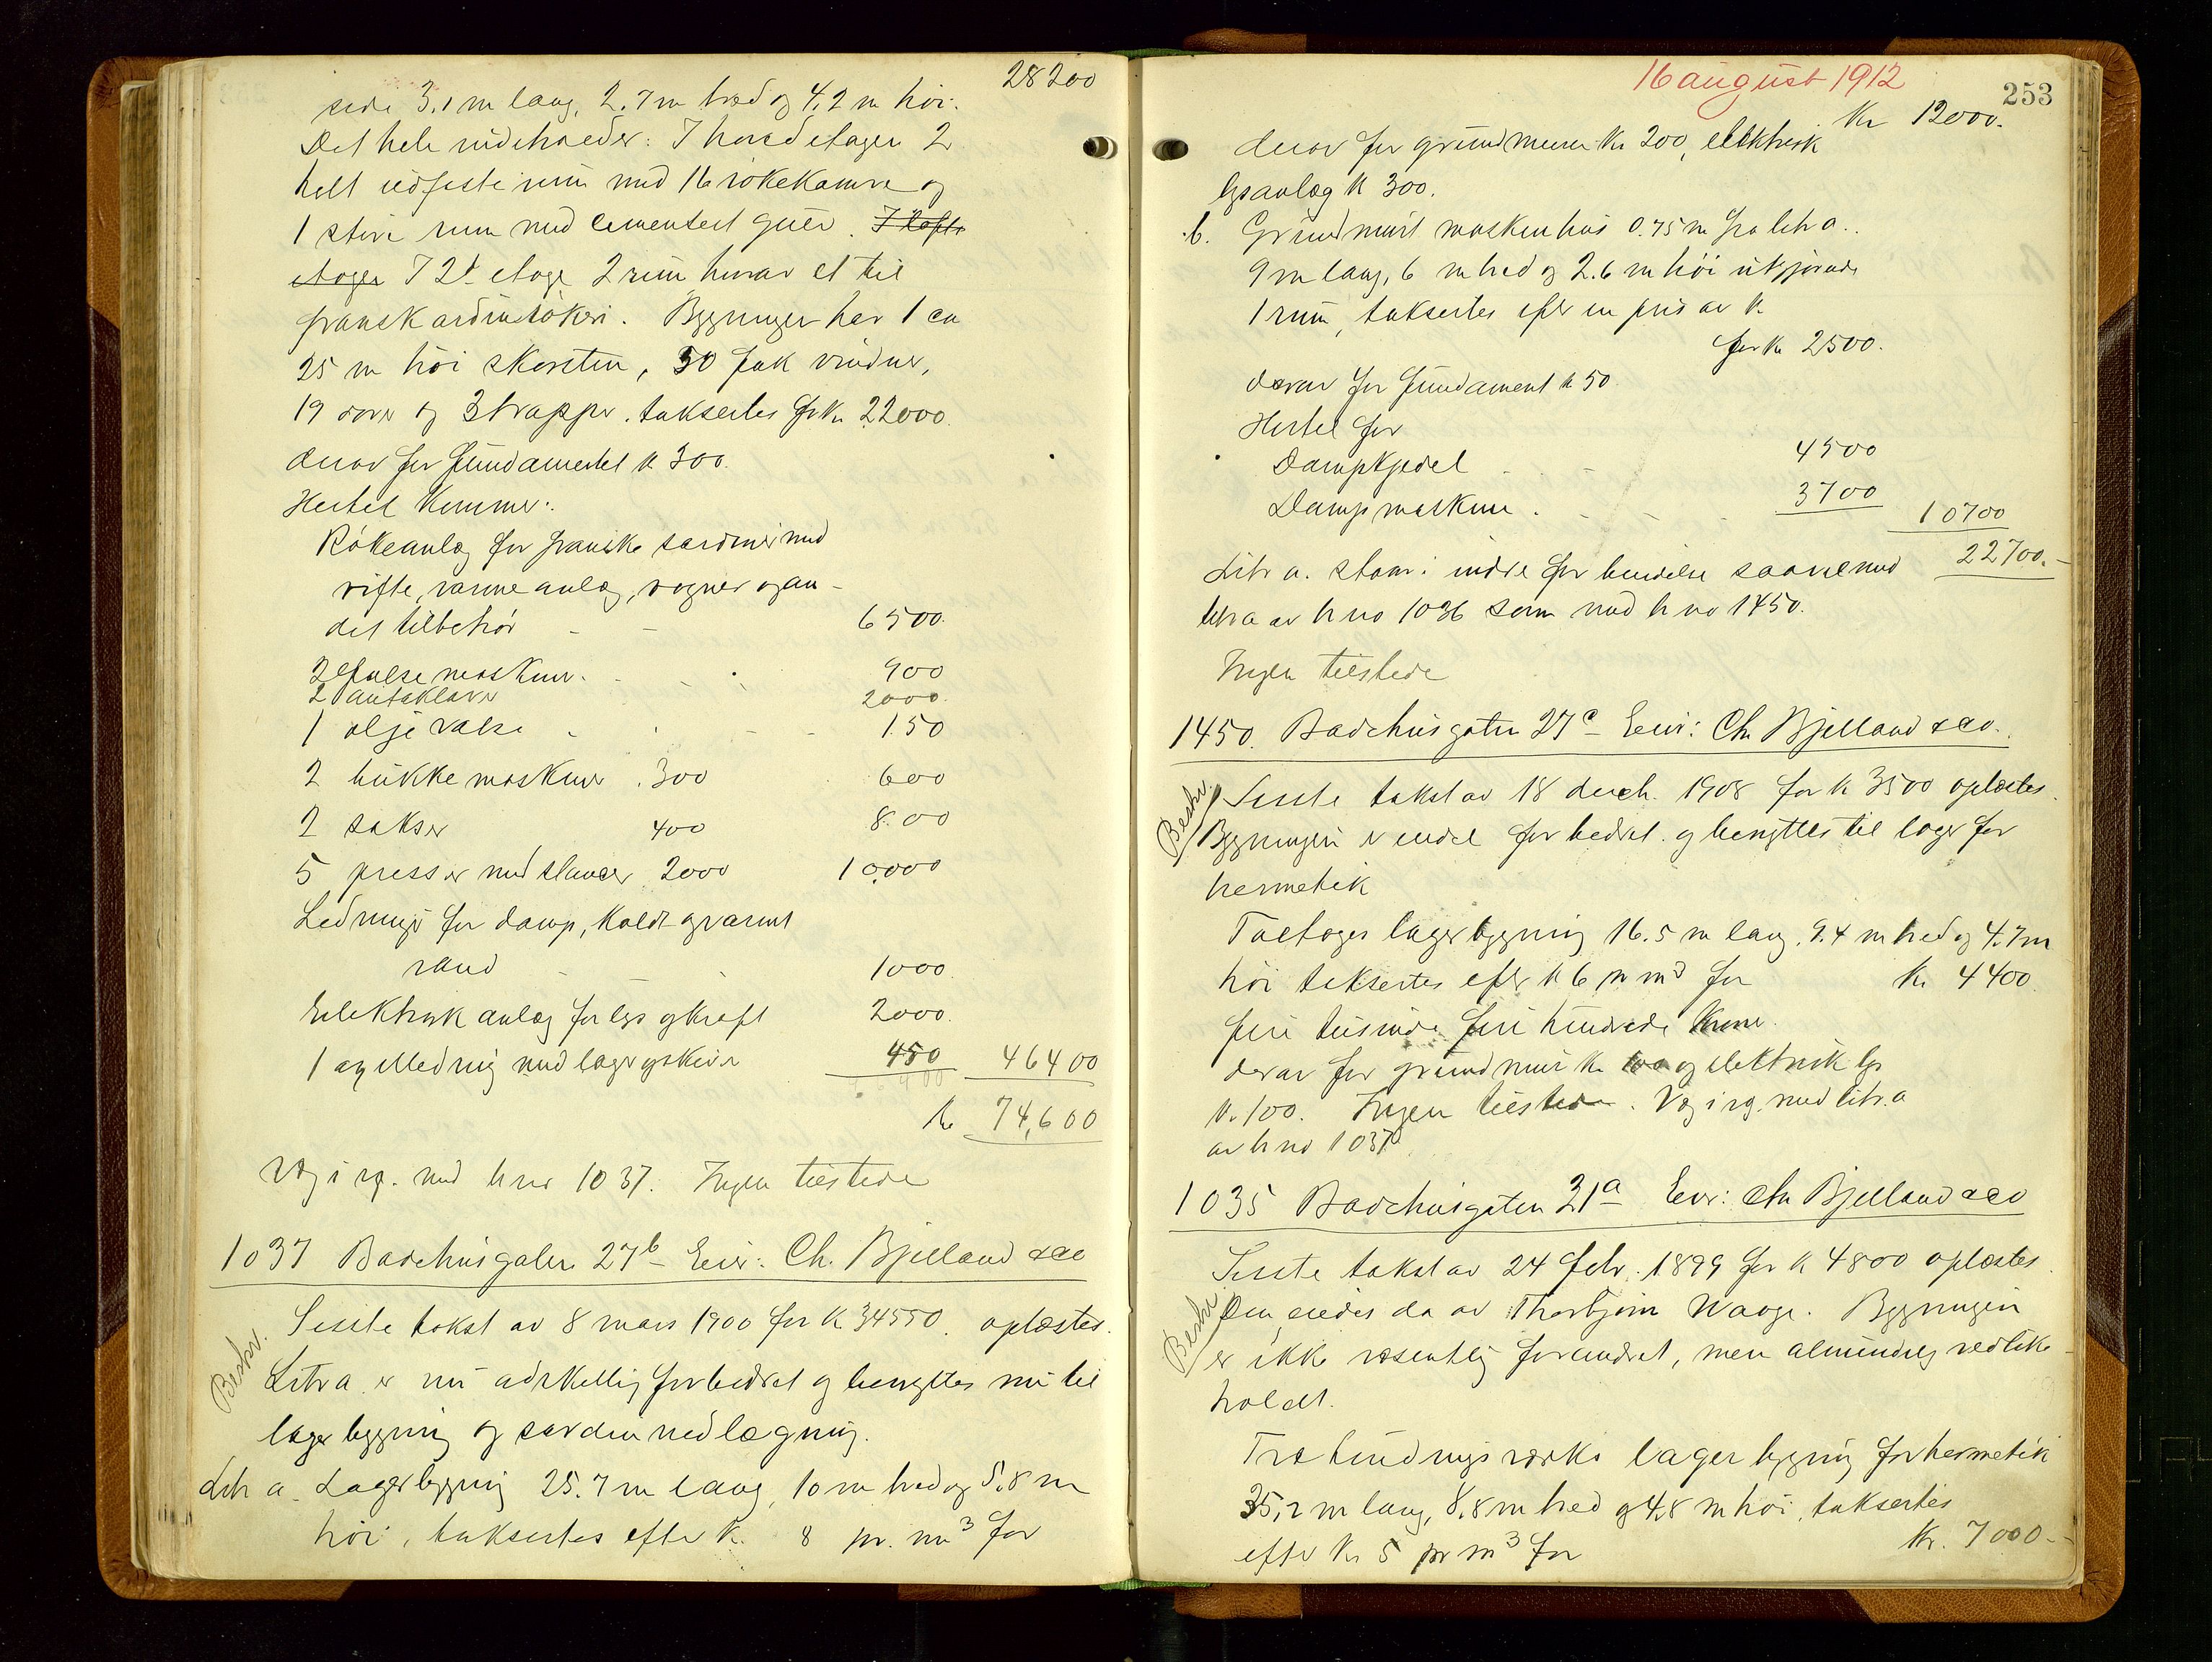 28200
side 3.1 m lang, 2.7 m bred og 4.2 m høi.
Det hele indeholder: I hovedetagen 2
helt ildfaste rum med 16 røkekamre og
1 større rum med cementert gulv. I lofts
etagen I 2d etage 2 rum hvorav et til
fransk sardinrøkeri. Bygningen har 1 ca
25 m høi skorsten, 30 fak vinduer,
19 dører og 3 trapper. taksertes for Kr. 22000.
derav for fundamentet kr 300.
Hertil kommer:
Røkeanlæg for franske sardiner med
vifte, varmeanlæg, vogner og an-
det tilbehør - - 6500.
3 falsemaskiner. - - 900
2 autoklaver 2000.
1 oljevalse - - 150
2 bukkemaskiner .300 600
2 sakser 400 800
5 presser med stanser 2000 10,000
Ledninger for damp, koldt og varmt
vand - 1000.
Elektrisk anlæg for lys og kraft 2000.
1 axelledning med lager og skiver 450 46400
kr 74,600
Væg i væg. med br no 1037. Ingen tilstede
1037 Badehusgaten 27b Eier: Ch. Bjelland & Co
Beskr.
Sisste takst av 8 mars 1900 for kr 34550. oplæstes.
Litr a er nu adskillig forbedret og benyttes nu til
lagerbygning og sardinnedlægning.
Litr a. Lagerbygning 25.7 m lang, 10 m bred og 5.8 m
høi, taksertes efter kr. 8 pr. m3 for
16 august 1912
253
Kr 12000.
derav for grundmuren kr 200, elektrisk
lysanlæg kr 300.
b. Grundmurt maskinhus 0.75 m fra litr a..
9 m lang, 6 m bred og 2.6 m høi utgjørende
1 rum, taksertes efter en pris av kr
for kr 2500.
derav for fundament kr 50.
Hertil for
Dampkjedel - - 4500
Dampmaskine. - - 3700 10700
22700.-
Litr a. staar i indre forbindelse saavel med
litr a av br no 1036 som med br no 1450.
Ingen tilstede
1450. Badehusgaten 27c Eier: Chr Bjelland & Co.
Beskr.
Sisste takst av 18 decb. 1908 for kr 3500 oplæstes.
Bygningen er endel forbedret. og benyttes til lager for
hermetik
Toetages lagerbygning 16.5 m lang, 9.4 m bred og 4.7 m
høi taksertes efter kr 6 pr m3 for kr 4400.
fire tusinde fire hundrede Kroner.
derav for grundmur kr. 100 og elektrisk lys
kr. 100. Ingen tilstede. Væg i væg. med litr. a
av br no 1037.
1035 Badehusgaten 21a Eier: Chr Bjelland & Co
Beskr.
Sisste takst av 24 febr. 1899 for kr 4800 oplæstes.
Den eiedes da av Thorbjørn Waage. Bygningen
er ikke væsentlig forandret, men almindelig vedlike-
holdt.
Træbindingsverks lagerbygning for hermetik
35,2 m lang, 8.8 m bred og 4.8 m høi, taksertes
efter kr 5 pr m3 for Kr. 7000.-